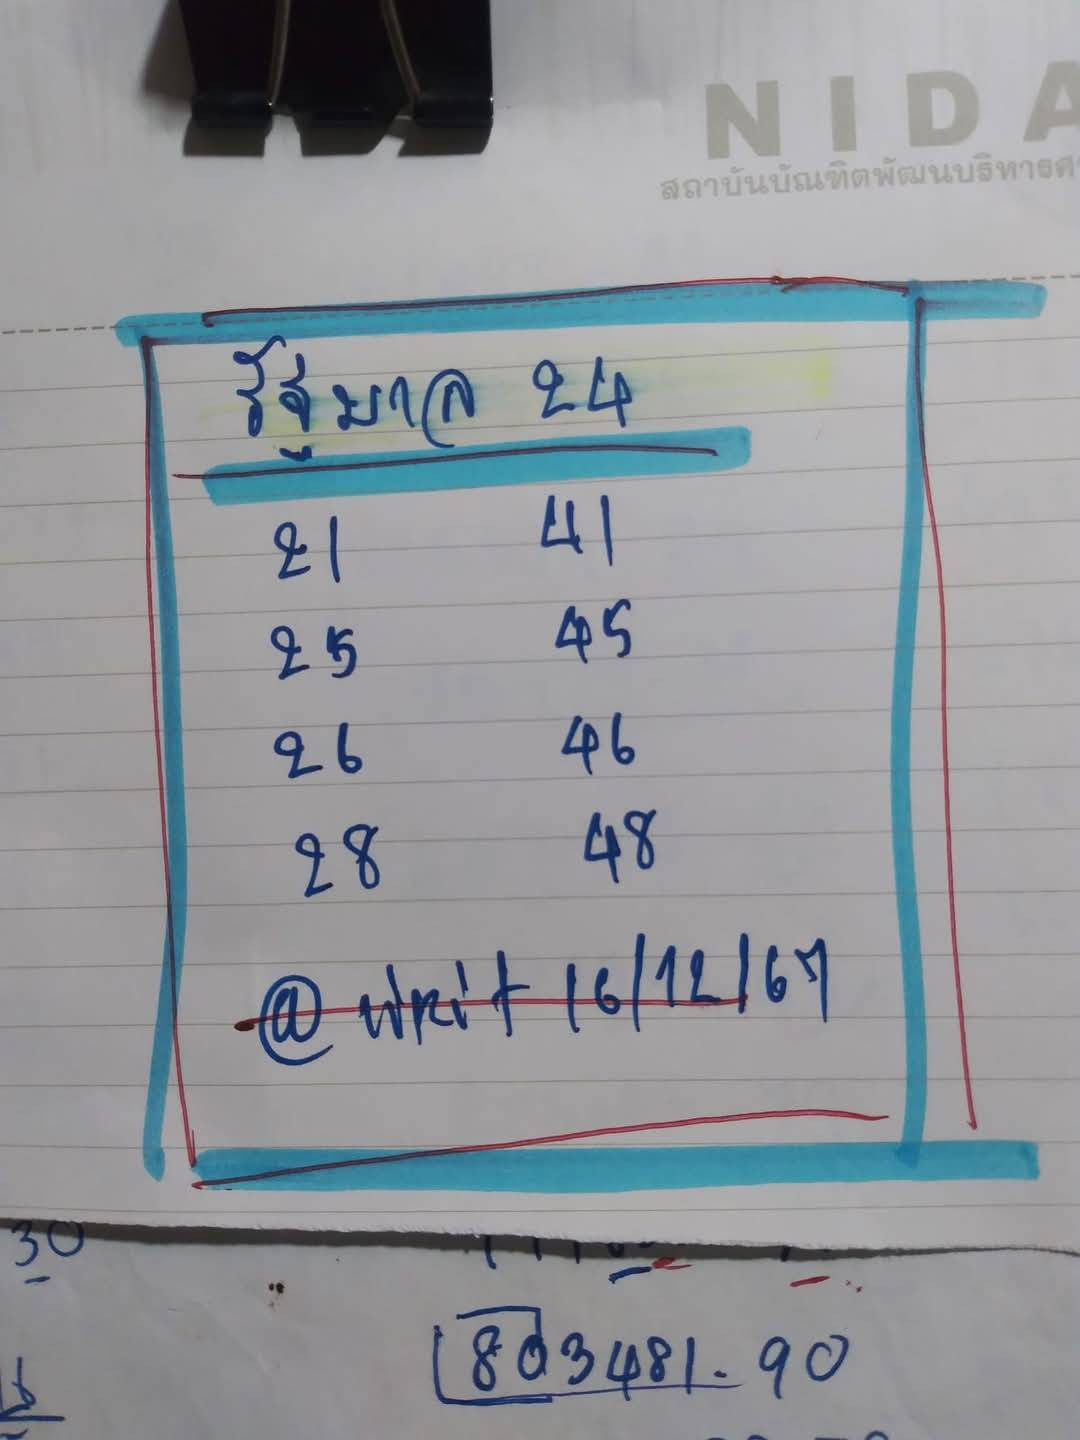 NIDA
สถาบันบัณฑิตพัฒนบริหารศ
รัฐบาล 24
21 41
25 45
26 46
28 48
@ write 16/12/67
30
803481.90